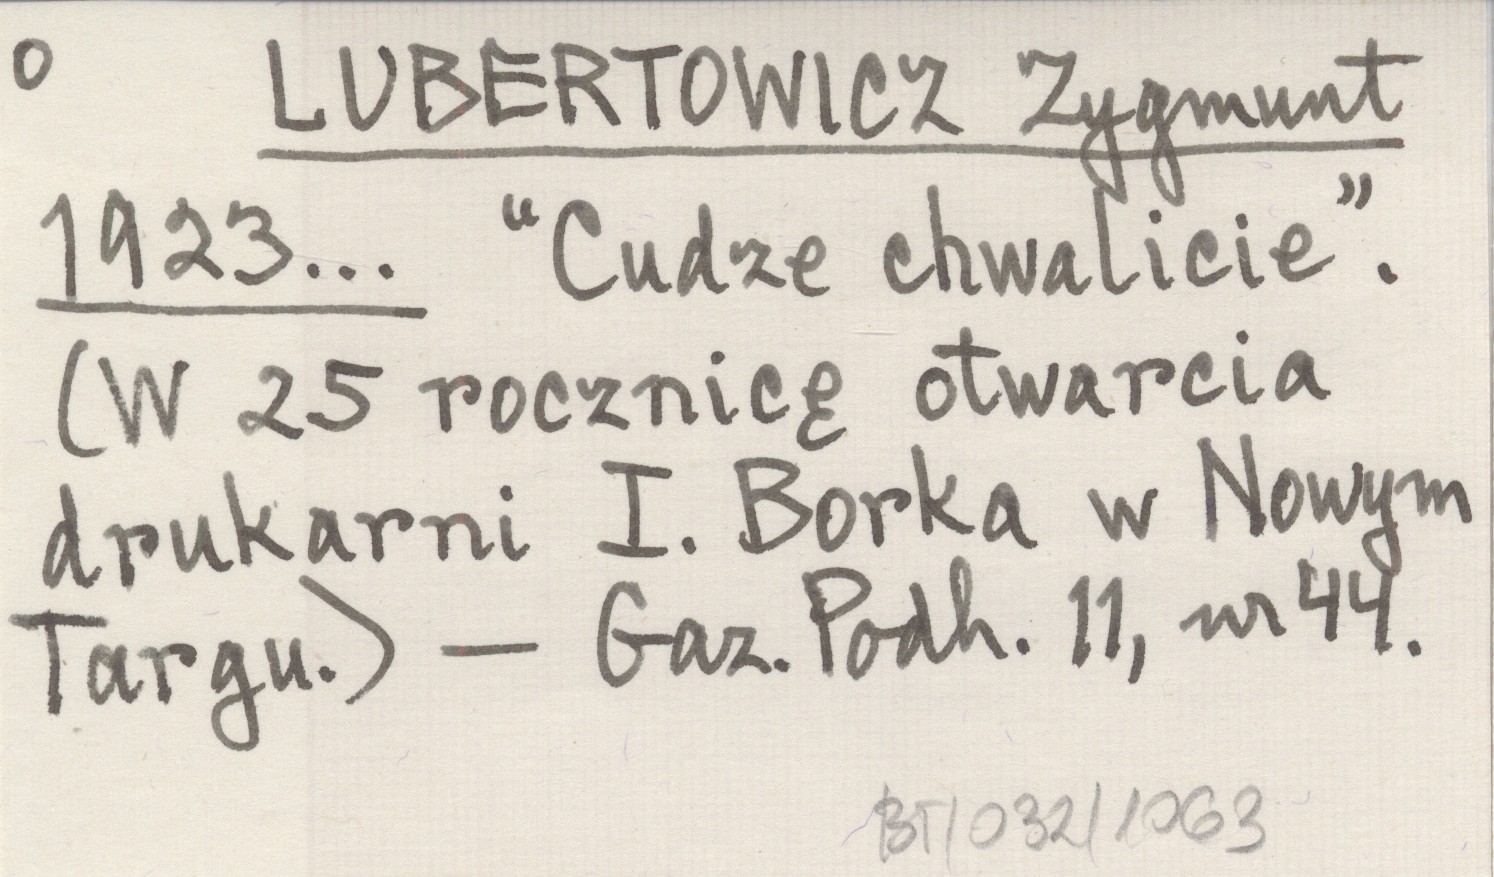 o LUBERTOWICZ Zygmunt
1923... “Cudze chwalicie”.
(W 25 rocznicę otwarcia
drukarni I. Borka w Nowym
Targu.) — Gaz. Podh. 11, nr 44.
BT/032/1063